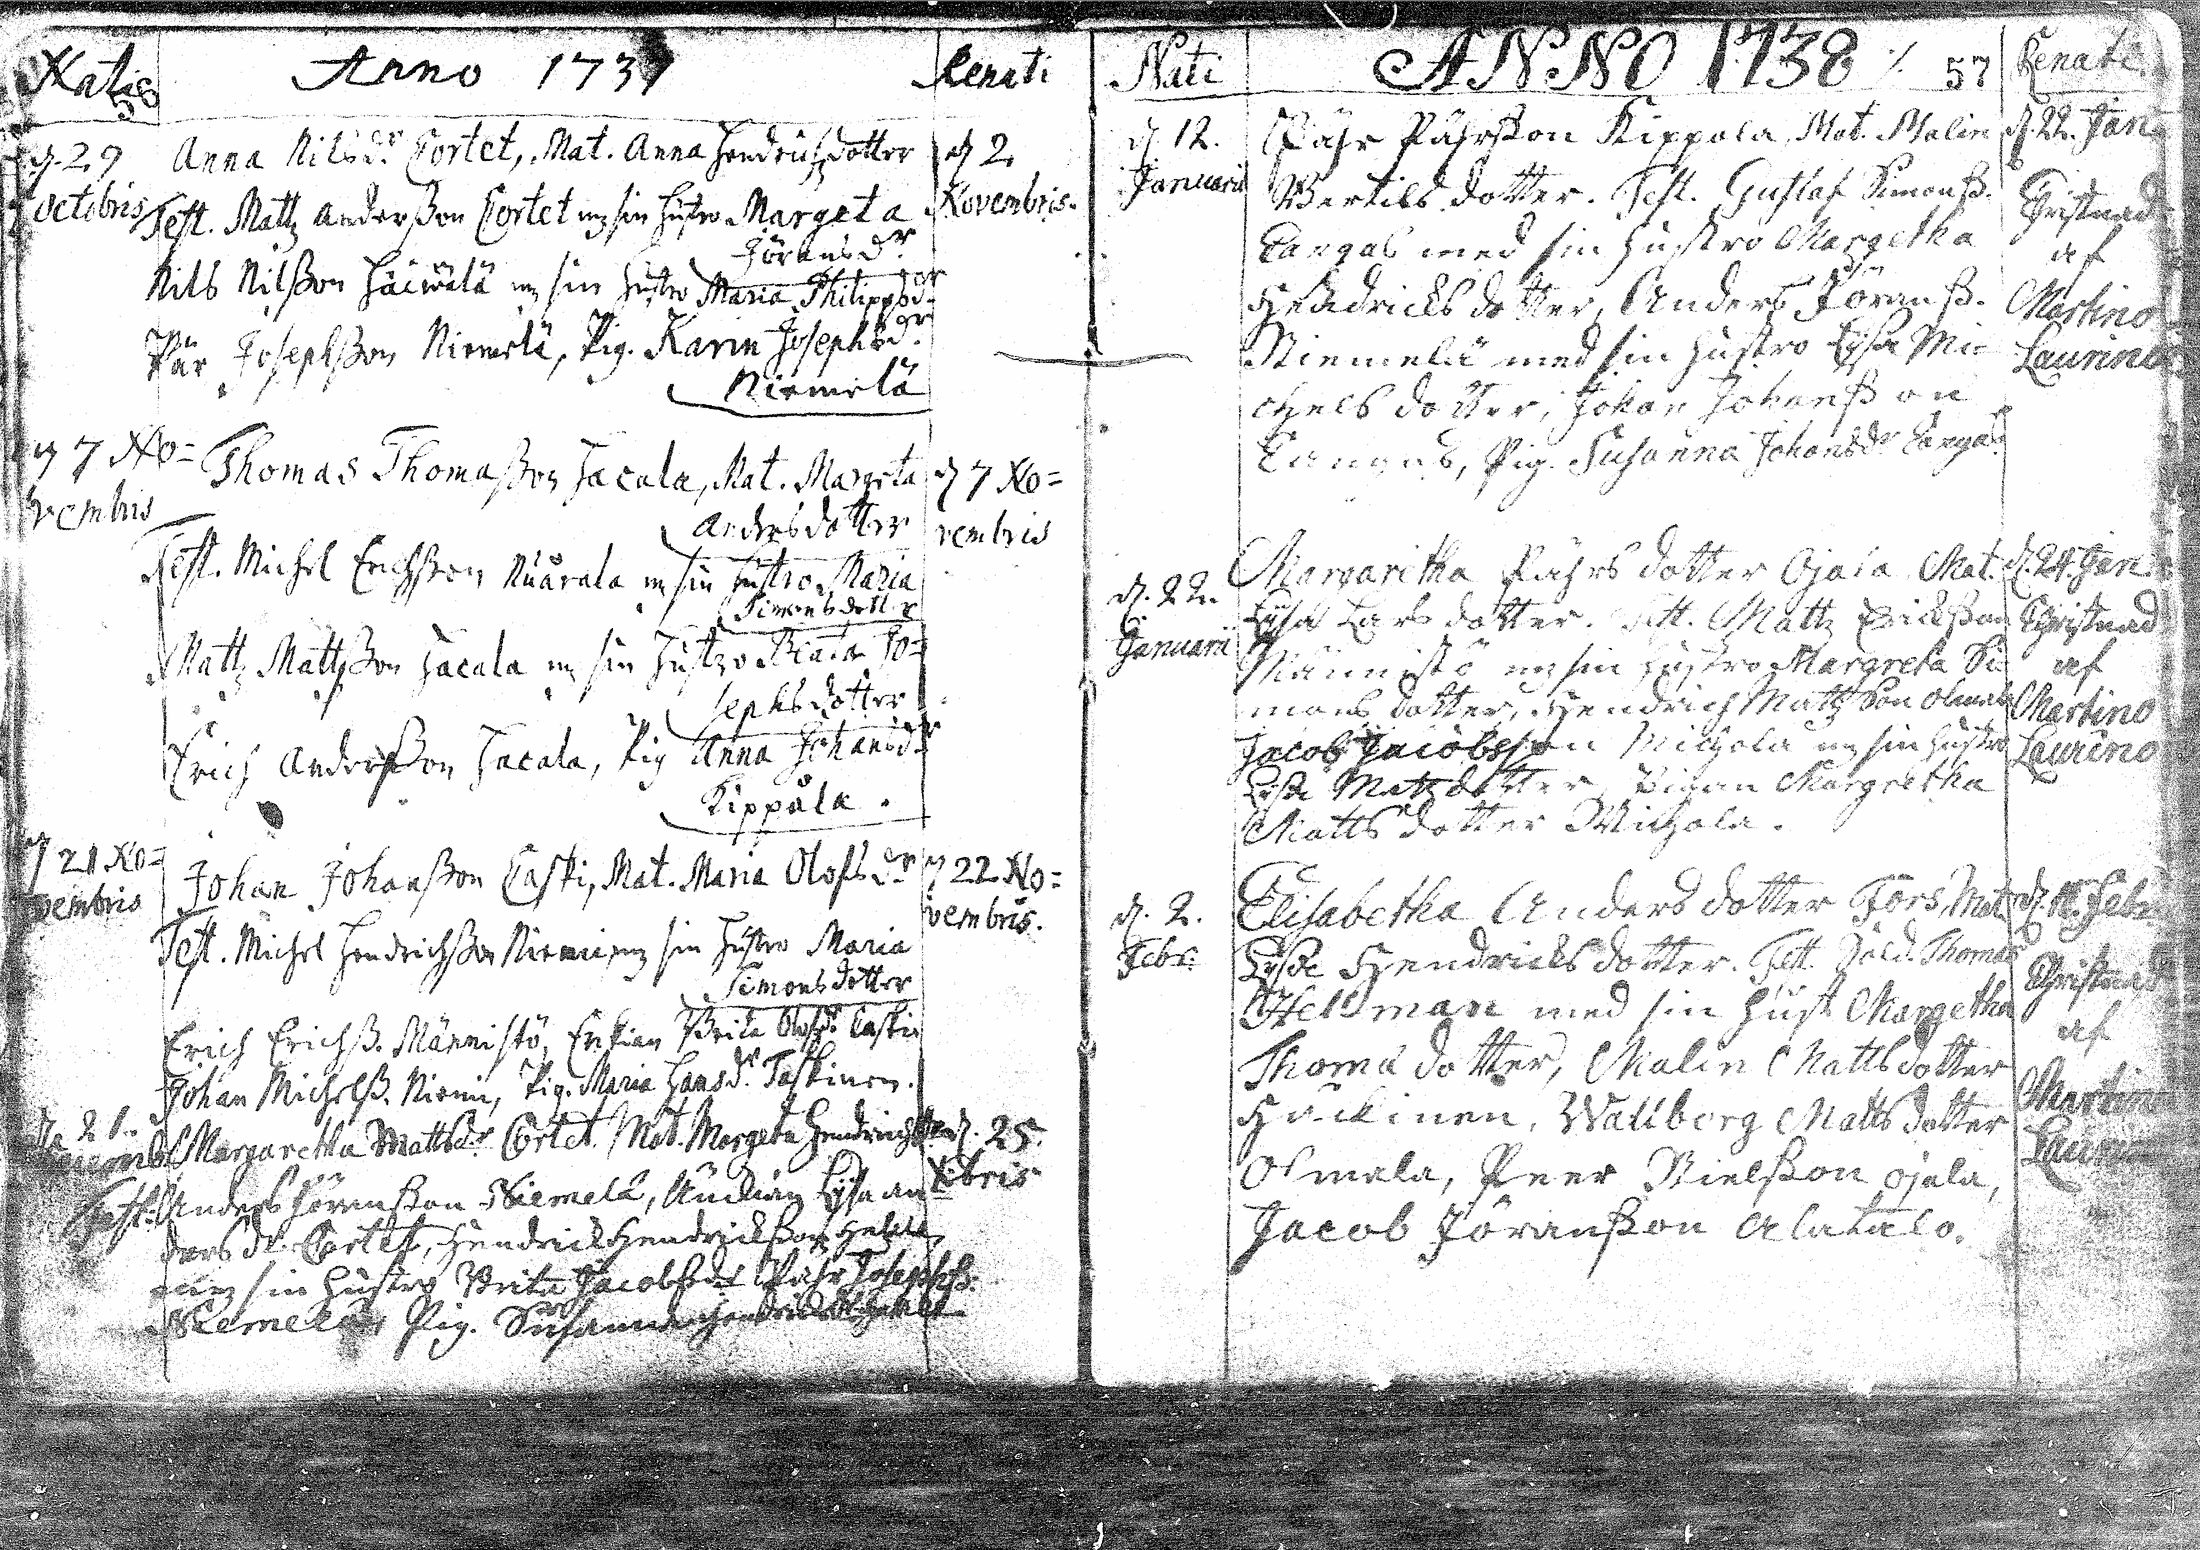 Nati
56
Anno 1737
Renati
d. 29
octobris
Anna Nils dr Cortet, Mat. Anna Hendrichsdotter
d 2
Novembris.
Test. Mattz Anderßon Cortet m sin hustro Margeta
Jörans dr
Nils Nilßon m sin hustro Maria Philipps dr
Pär Josephßon Niemelä, Pig. Karin Josephs dr
Niemelä
d 7 No=
vembris
Thomas Thomaßon Jacala, Mat. Margeta
Anders dotter
d 7 No=
vembris
Test. Michel Erichßon m sin hustro Maria
Simons dotter
Mattz Mattzßon Jacala m sin hustro Beata Jo=
sephs dotter
Erich Anderßon Jacala, Pig Anna Johans dr
Kippala.
d 21 No=
vembris
Johan Johanßon Caski, Mat. Maria Olofs dr
d 22 No=
vembris.
Test. Michel Hendrichßon Niemi m sin hustro Maria
Simons dotter
Erich Erichß. Männistö, Brita Olofs dr
Johan Michelß. Niemi, Pig. Maria Hans dr Taskinen.
21
Margaretha Matts dr Cortet. Mat. Margeta Hendrichs dr
d. 25.
Xbris
Test. Anders Jöranßon Niemelä, Lysa An
ders dr Cortet, Hendrick Hendrickßon
m sin hustro Brita Jacobs dr Pähr Josephß.
Niemelä, Pig. Susanna
Nati
ANNO 1738 ·/.
57
Renati
d. 12.
Januarii
Pähr Pährßon Kippola, Mat. Malin
Bertils dotter. Test. Gustaf Simonß.
Cangas med sin hustro Margetha
Hendricks dotter, Anders Jöranß.
Niemelä med sin hustro Lysa Mi
chels dotter, Johan Johanßon
Cangas, Pig. Susanna Johans dr Cangas
d. 22. Jan
Christnad
af
Martino
Laurino
d. 22.
Januarii
Margaretha Pährs dotter Ojala Mat.
Lysa Lars dotter. Test. Mattz Erickßon
Männistö m sin hustro Margreta Si
mons dotter, Hendrich Mattzson
Jacob Jacobsson m sin hustro
Lysa Matz dotter, Pigan Margretha
Matts dotter
d. 24. Jan
Christnad
af
Martino
Laurino
d. 2.
Febr.
Elisabetha Anders dotter Fors, Mat.
Lysa Hendricks dotter. Test. Sold. Thomas
Hellman med sin hust. Margetha
Thoma dotter, Malin Matts dotter
Wallborg Matts dotter
Osmala, Peer Nielßon Ojala,
Jacob Jöranßon Alatalo.
Febr
Christnad
af
Martino
Laurino